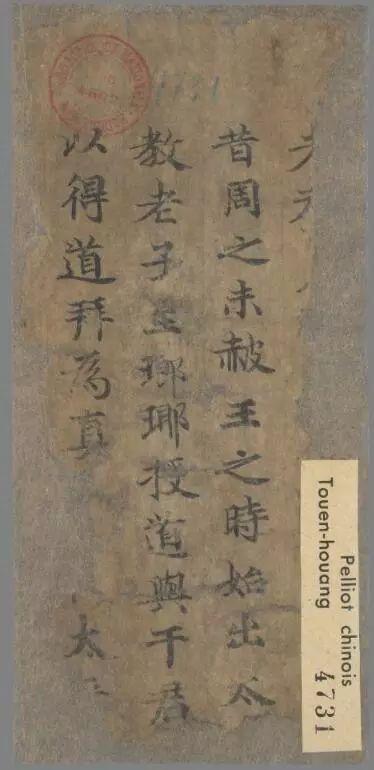 昔周之末赧王之時始出太
教老子至瑯瑘授道與干君
以得道拜為真 太
4731
Pelliot chinois
Touen-houang 4731